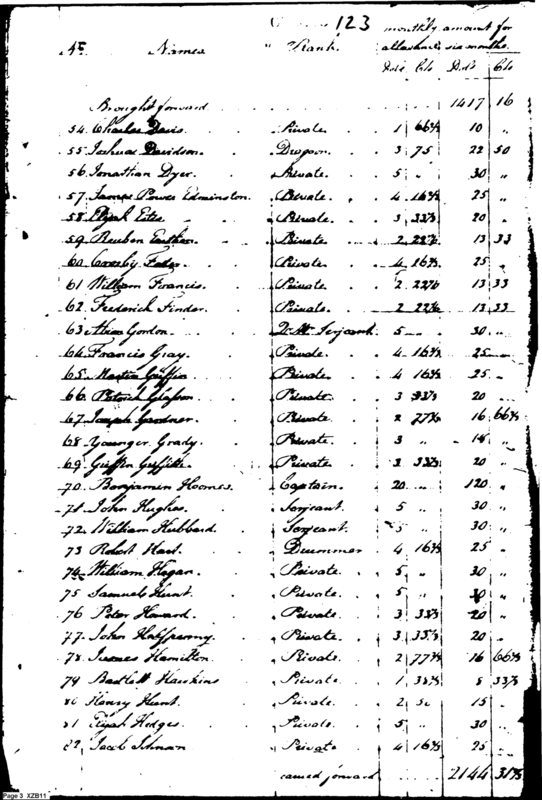 123
No. Names " Rank. monthly amount for
allowance six months.
Dols Cts Dols Cts
Brought forward 1417 16
54 Charles Davis. Private 1 66⅔ 10 "
55 Joshua Davidson. Dragoon 3 75 22 50
56 Jonathan Dyer. Private 5 " 30 "
57 James Power Edminston. Private 4 16⅔ 25 "
58 Elijah Estes Private 3 33⅓ 20 "
59 Reuben Private 2 13 33
60 Private 4 16⅔ 25 "
61 William Francis. Private 2 13 33
62 Frederick Finder. Private 2 13 33
63 Gordon. Qr Mr Serjeant 5 30 "
64 Francis Gray. Private 4 16⅔ 25
65 Martin Griffin Private 4 16⅔ 25
66 Patrick Private 3 33⅓ 20
67 Joseph Gardner. Private 2 77⅔ 16 66⅔
68 Younger Grady. Private 3 "
69 Griffin Griffith Private 3 33⅓ 20 "
70 Benjamin Hoomes. Captain 20 " 120 "
71 John Hughes. Serjeant 5 " 30 "
72 William Hubbard Serjeant 5 " 30 "
73 Robert Drummer 4 16⅔ 25 "
74 William Hogan. Private 5 " 30 "
75 Samuel Hunt. Private 5 " 30 "
76 Peter Howard Private 3 33⅓ 20 "
77 John Halfpenny. Private 3 33⅓ 20
78 James Hamilton. Private 2 77⅔ 16 66⅔
79 Bartlett Hawkins Private 1 38⅔ 8 33⅓
80 Henry Hunt. Private 2 50 15 "
81 Elijah Hedges. Private 5 " 30
82 Jacob Private 4 16⅔ 25 "
carried forward 2144 31⅔
Page 3 XZB11